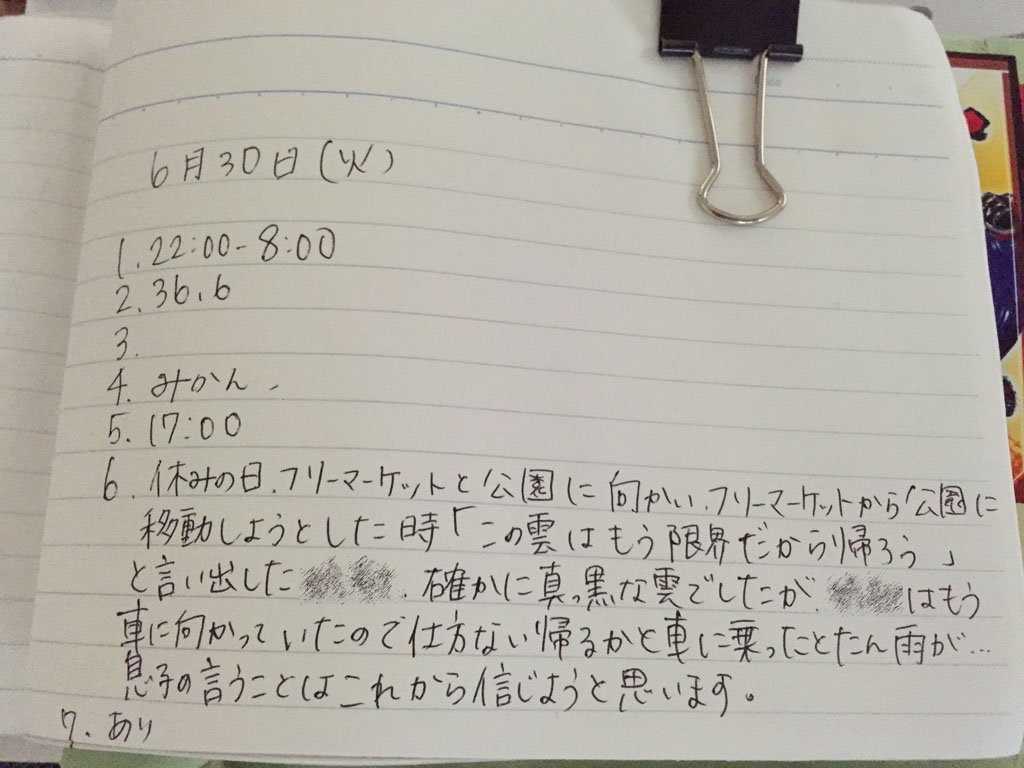 6月30日(火)
1. 22:00-8:00
2. 36.6
3.
4. みかん、
5. 17:00
6. 休みの日、フリーマーケットと公園に向かい、フリーマーケットから公園に
移動しようとした時「この雲はもう限界だから帰ろう」
と言い出した 、確かに真っ黒な雲でしたが、 はもう
車に向かっていたので仕方ない帰るかと車に乗ったとたん雨が…
息子の言うことはこれから信じようと思います。
7. あり